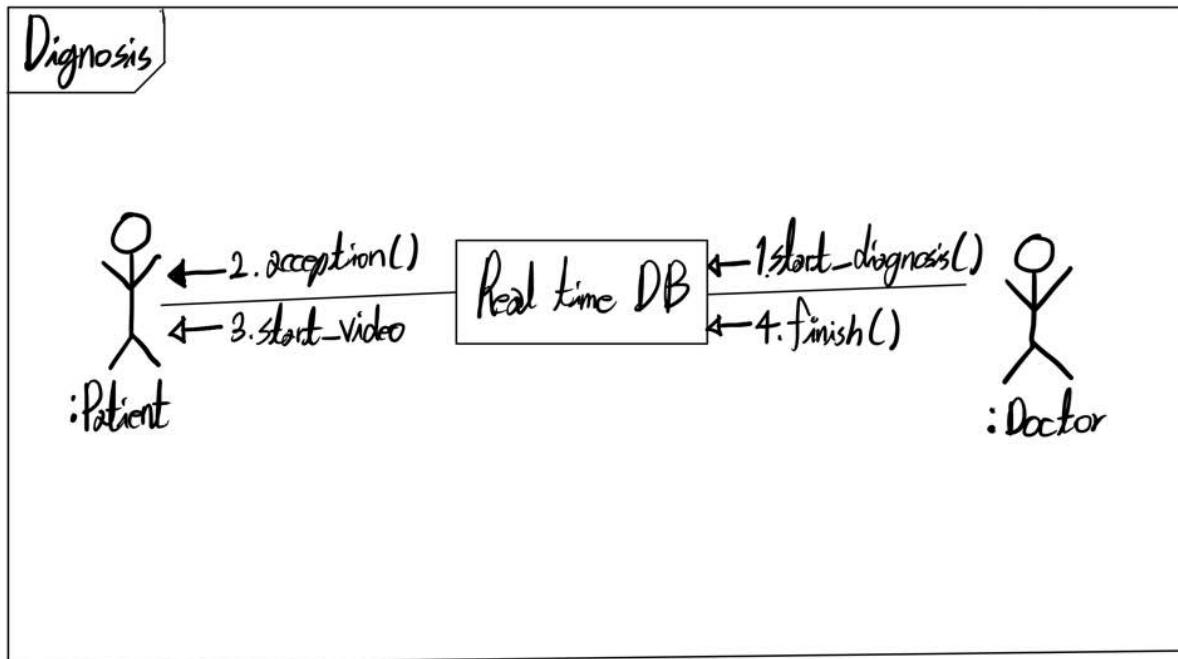 Dignosis
2.acception()
3.start_video
:Patient
Real time DB
1.start_diagnosis()
4.finish()
:Doctor